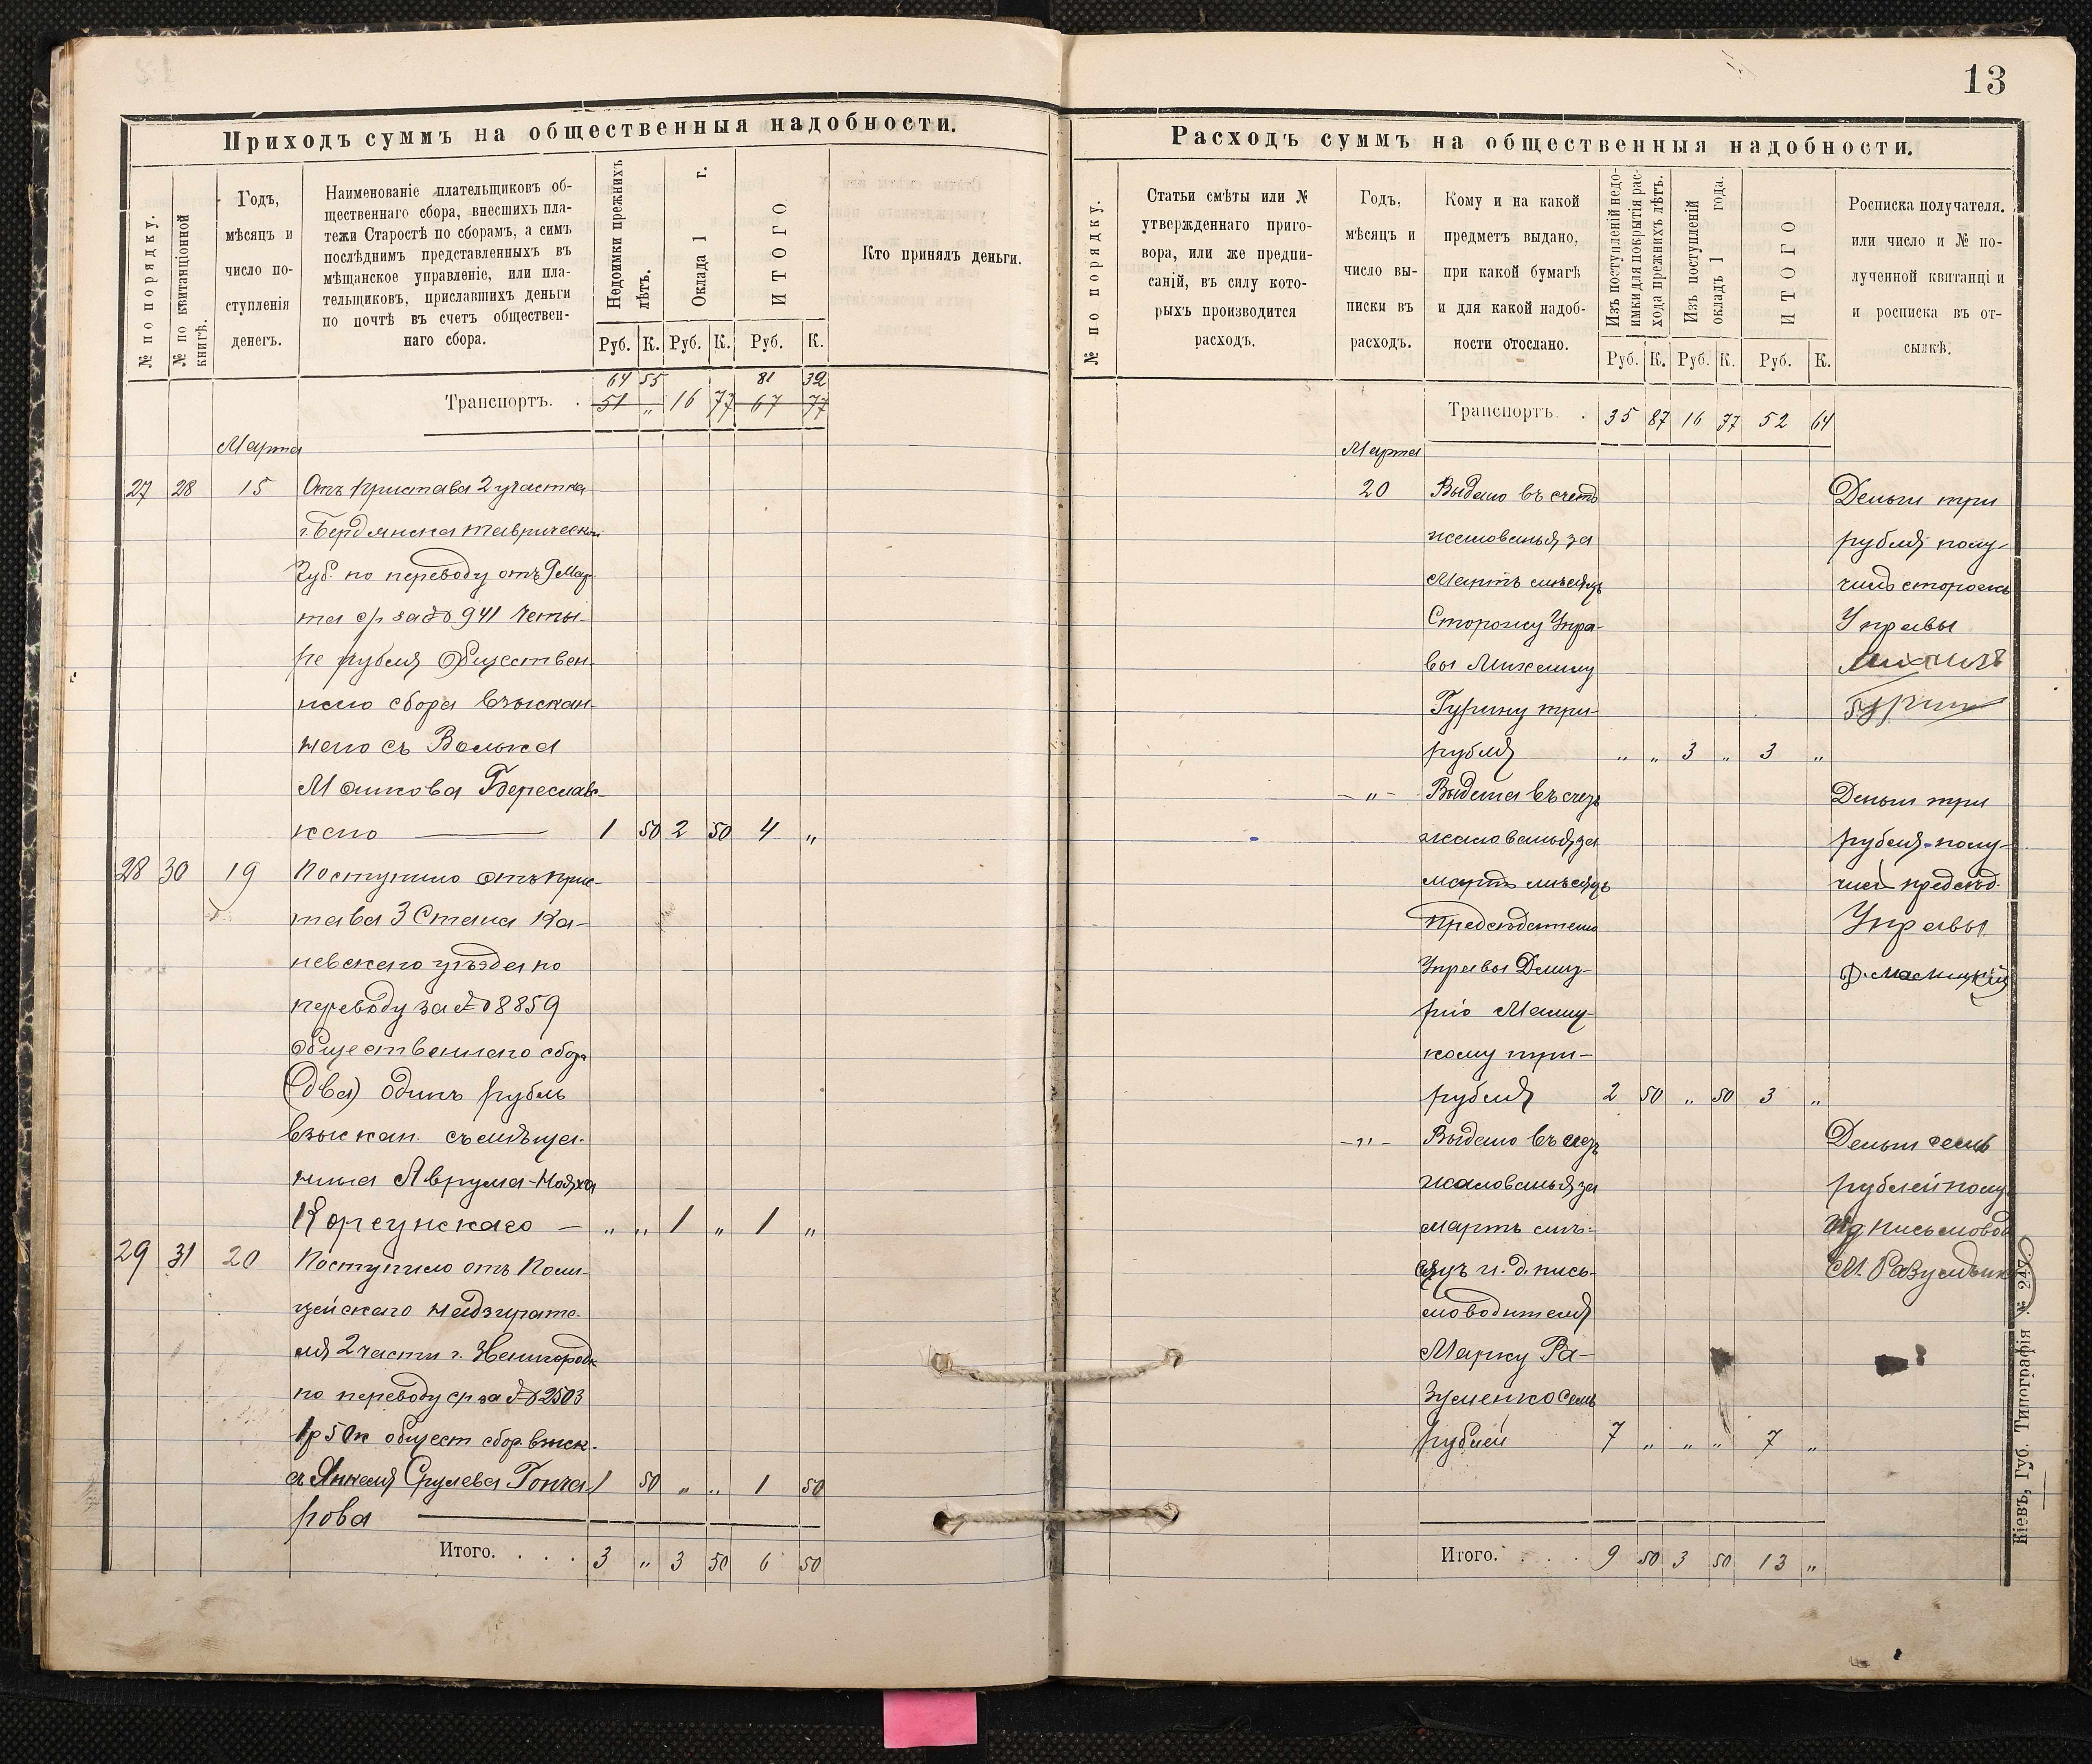 13
Приходъ суммъ на общественныя надобности.
№ по порядку.
№ по квитанціонной книгѣ.
Годъ,
мѣсяцъ и
число по-
ступленія
денегъ.
Наименованіе плательщиковъ об-
щественнаго сбора, внесшихъ пла-
тежи Старостѣ по сборамъ, а симъ
послѣднимъ представленныхъ въ
мѣщанское управленіе, или пла-
тельщиковъ, приславшихъ деньги
по почтѣ въ счетъ обществен-
наго сбора.
Недоимки прежнихъ лѣтъ.
Оклада 1 г.
ИТОГО
Кто принялъ деньги.
Руб. К. Руб. К. Руб. К.
64 55 81 32
Транспортъ. . 51 „ 16 77 67 77
Марта
27 28 15 Отъ Пристава 2 участка
г. Бердянска Таврической
Губ. по переводу отъ 9 Мар-
та с/г за № 941 четы-
ре рубля Обществен-
наго сбора взыскан-
наго съ Волька
Мошкова Береславс-
каго — 1 50 2 50 4 „
28 30 19 Поступило отъ Прис-
тава 3 Стана Ка-
невскаго уѣзда по
переводу за № 8859
общественнаго сбора
(два) одинъ рубль
взыскан. съ мѣща-
нина Аврума-Нояха
Корсунскаго — „ „ 1 „ 1 „
29 31 20 Поступило отъ Поли-
цейскаго надзирате-
ля 2 части г. Звенигородк
по переводу с/г за № 2503
1 р 50 к общест сбор. взыск.
съ Янкеля Срулева Гонча- 1 50 „ „ 1 50
рова
Итого. . . . 3 „ 3 50 6 50
Расходъ суммъ на общественныя надобности.
№ по порядку.
Статьи смѣты или №
утвержденнаго приго-
вора, или же предпи-
саній, въ силу кото-
рыхъ производится
расходъ.
Годъ,
мѣсяцъ и
число вы-
писки въ
расходъ.
Кому и на какой
предметъ выдано,
при какой бумагѣ
и для какой надоб-
ности отослано.
Изъ поступленій недо-
имки для покрытія рас-
хода прежнихъ лѣтъ.
Изъ поступленій
окладъ 1 года.
ИТОГО
Росписка получателя.
или число и № по-
лученной квитанціи
и росписка въ от-
сылкѣ.
Руб. К. Руб. К. Руб. К.
Транспортъ. . 35 87 16 77 52 64
Марта
20 Выдано въ счетъ Деньги три
жалованья за рубля полу-
Мартъ мѣсяцъ чилъ сторожъ
Сторожу Упра- Управы
вы Михаилу Михаилъ
Гурину три Гурин
рубля „ „ 3 „ 3 „
— „ — Выдана въ счетъ Деньги три
жалованья за рубля полу-
мартъ мѣсяцъ чилъ предсѣд.
Предсѣдателю Управы
Управы Дмит-
рію
кому три
рубля 2 50 „ 50 3 „
— „ — Выдано въ счетъ Деньги семь
жалованья за рублей полу
мартъ мѣ-
сяцъ и. д. пись-
моводителя
Марку Ра-
зуменко семь
рублей 7 „ „ „ 7 „
Итого. . . . 9 50 3 50 13 „
Кіевъ, Губ. Типографія № 247